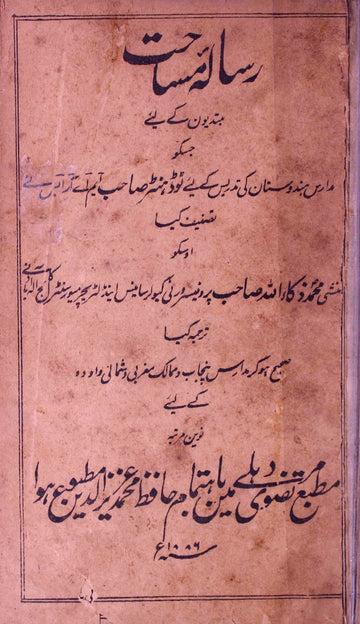 رسالۂ مساحت
مبتدیون کے لیئے
جسکو
مدارس ہندوستان کی تدریس کے لیئے ٹوڈ ہنٹر صاحب ایم اے آر ایس نے
تصنیف کیا
اوسکو
منشی محمد ذکاء اللہ صاحب پروفیسر ورنی کیولر سائینس اینڈ لٹریچر میور سنٹرل کالج الہ آباد نے
ترجمہ کیا
صحیح ہوکر مدارس پنجاب و ممالک مغربی و شمالی و اودہ
کے لیئے
نوین مرتبہ
مطبع مرتضوی دہلی مین باہتمام حافظ محمد عزیز الدین مطبوع ہوا
سنہ ۱۸۸۶ع